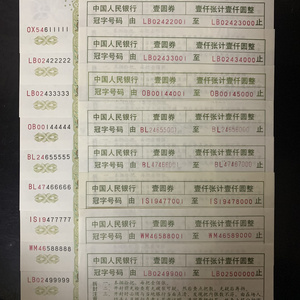 OX54611111
中国人民银行 壹圆券 壹仟张计壹仟圆整
冠字号码 由 LB02422001 至 LB02423000 止
LB02422222
中国人民银行 壹圆券 壹仟张计壹仟圆整
冠字号码 由 LB02433001 至 LB02434000 止
LB02433333
中国人民银行 壹圆券 壹仟张计壹仟圆整
冠字号码 由 OB00144001 至 OB00145000 止
OB00144444
中国人民银行 壹圆券 壹仟张计壹仟圆整
冠字号码 由 BL24655001 至 BL24656000 止
BL24655555
中国人民银行 壹圆券 壹仟张计壹仟圆整
冠字号码 由 BL47466001 至 BL47467000 止
BL47466666
中国人民银行 壹圆券 壹仟张计壹仟圆整
冠字号码 由 ISI9477001 至 ISI9478000 止
ISI9477777
中国人民银行 壹圆券 壹仟张计壹仟圆整
冠字号码 由 WM46588001 至 WM46589000 止
WM46588888
中国人民银行 壹圆券 壹仟张计壹仟圆整
冠字号码 由 LB02499001 至 LB02500000 止
LB02499999